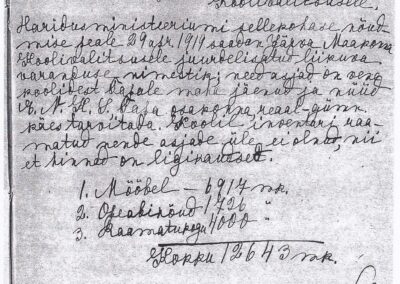 Koolivalitsusele.
Haridusministeeriumi sellekohase nõud-
mise peale 29 apr. 1919 saadan Järva Maakonna
Koolivalitsusele juurdelisatud liikuva
varanduse nimestiku; need asjad on vene
koolidest Tapale maha jäenud ja nüüd
E. N. H. S. Tapa osakonna reaal-gümn.
käes tarvitada. Koolil inventari raa-
matud nende asjade üle ei olnud, nii
et hinnad on ligikaudsed.
1. Mööbel – 6917 mk.
2. Õpeabinõud 1726 "
3. Raamatukogu 4000 "
Kokku 12643 mk.